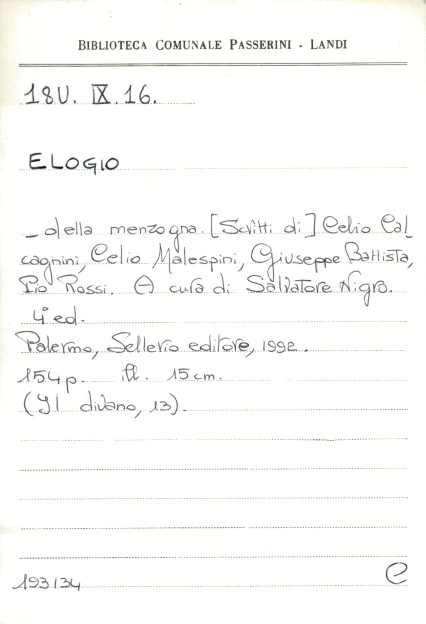 BIBLIOTECA COMUNALE PASSERINI - LANDI
18U. IX. 16.
ELOGIO
_ della menzogna. [Scritti di] Celio Cal_
cagnini, Celio Malespini, Giuseppe Battista,
Pio Rossi. A cura di Salvatore Nigro.
4ª ed.
Palermo, Sellerio editore, 1992.
154 p. ill. 15 cm.
(Il divano, 13).
193134
C